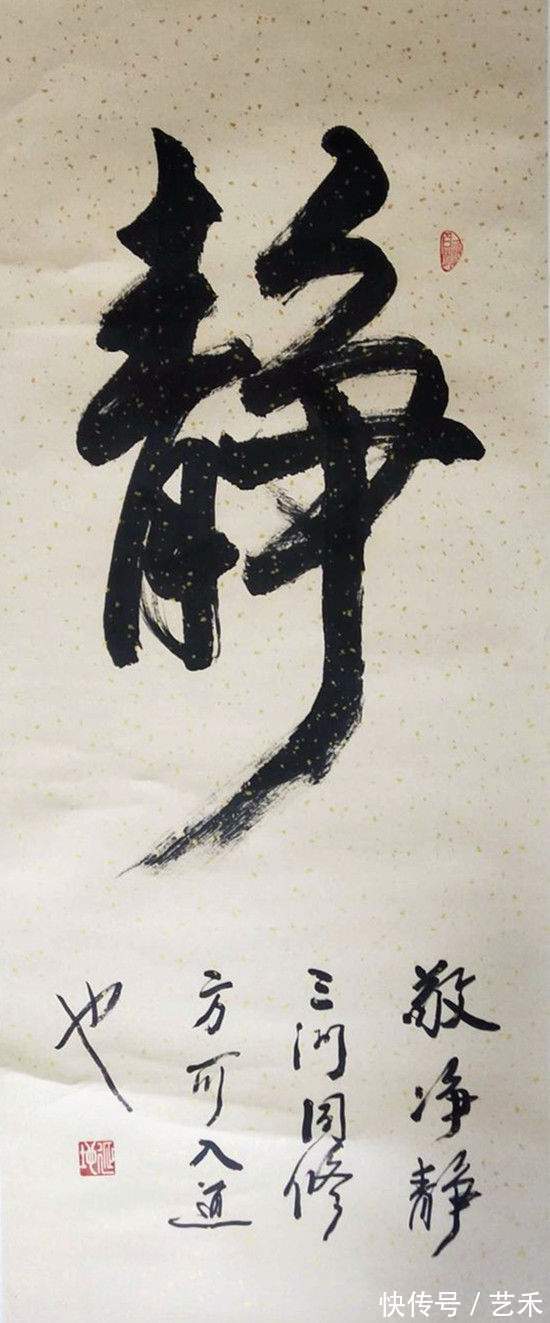 静
敬净静
三门同修
方可入道
也
快传号/艺禾